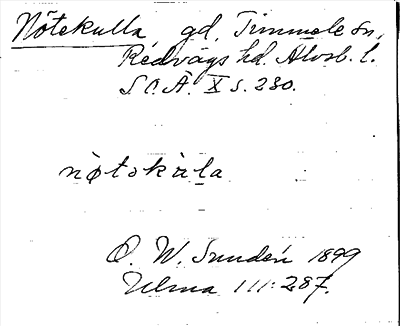 Nötekulla, gd, Timmele sn,
Redvägs hd. Älvsb. l.
S.O.Ä. X s. 230.
nøtəkùla
O. W. Sundén 1899
Ulma 111:287.